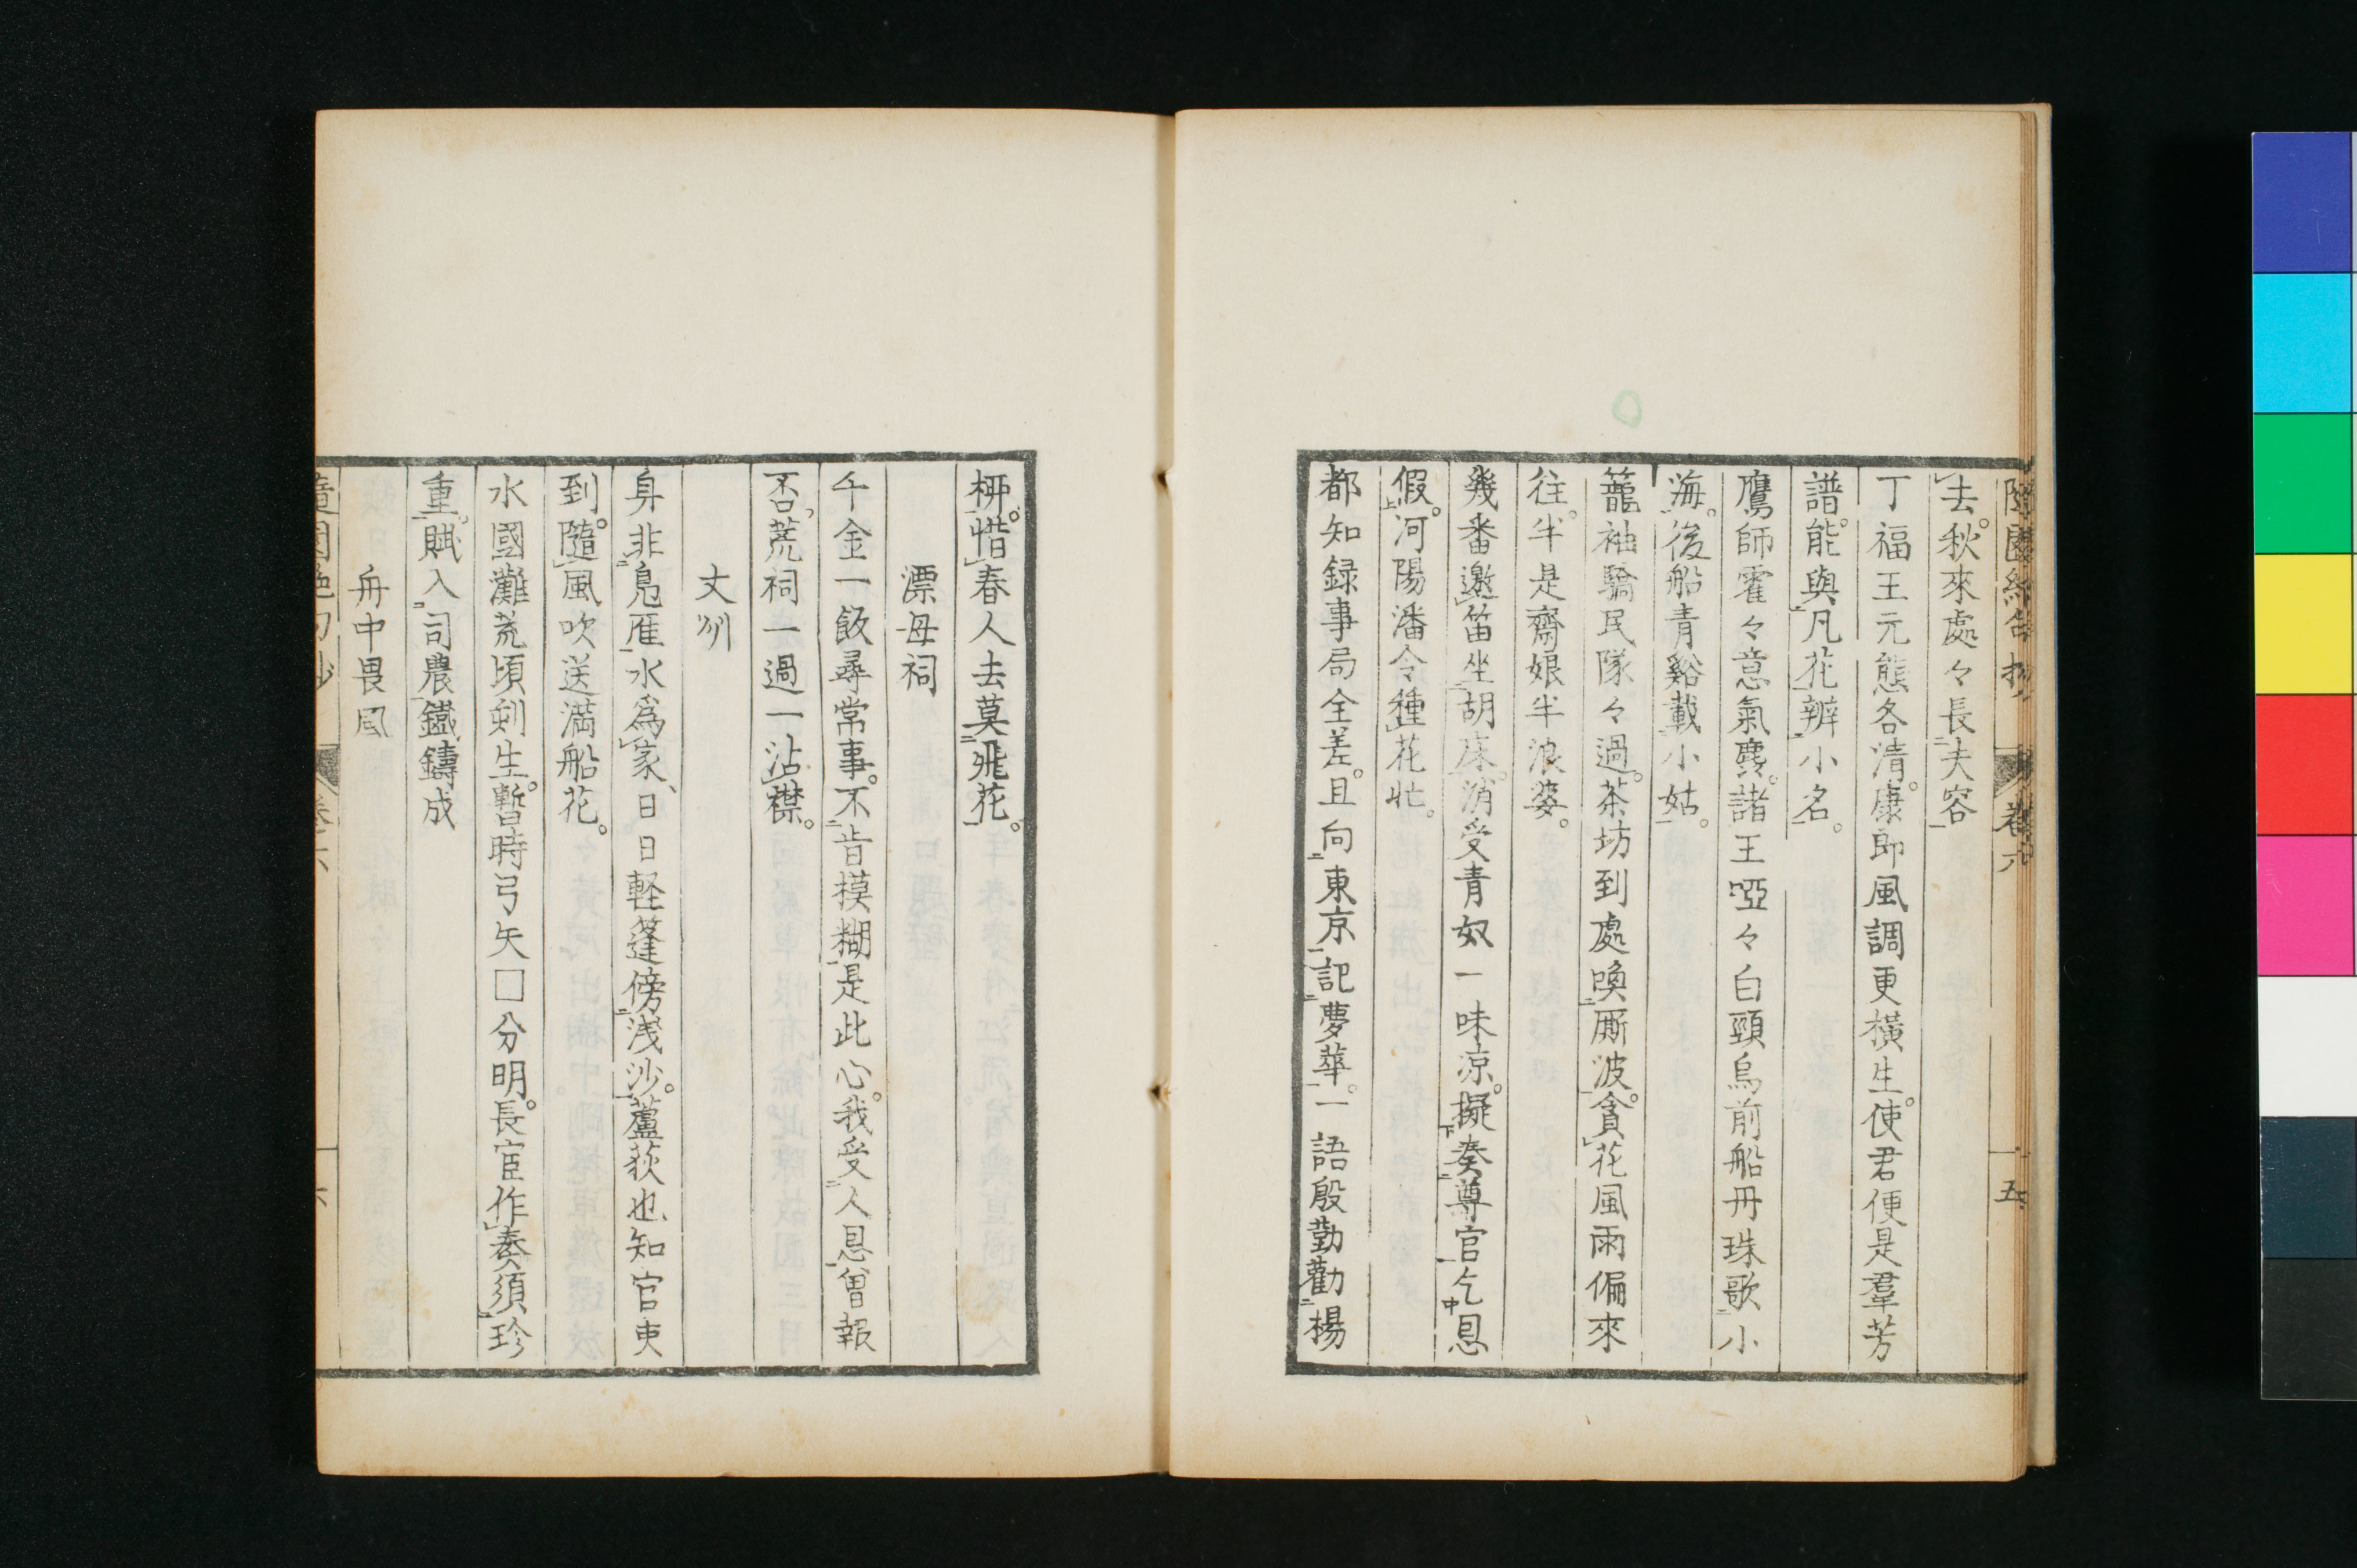 隨園絶句抄 卷六 五
去。秋來處々長夫容
丁福王元態各清。康郎風調更橫生。使君便是羣芳
譜。能與凡花辨小名。
鷹師霍々意氣麤。諸王啞々白頸烏前船丹珠歌小
海。後船青谿載小姑。
籠袖驕民隊々過。茶坊到處喚厮波。貪花風雨偏來
往。半是齋娘半浪婆。
幾番邀笛坐胡床。消受青奴一味涼。擬奏尊官乞恩
假。河陽潘令種花忙。
都知録事局全差。且向東京記夢華。一語殷勤勸楊
柳。惜春人去莫飛花。
漂母祠
千金一飯尋常事。不肯模糊是此心。我受人恩曾報
否。荒祠一過一沾襟。
丈卅
身非鳧雁水爲家、日日軽篷傍浅沙。蘆荻也知官吏
到。隨風吹送満船花。
水國灘荒頃刻生。暫時弓矢□分明。長官作奏須珍
重。賦入司農鐵鑄成
舟中畏風
隨園絶句抄 卷六 六